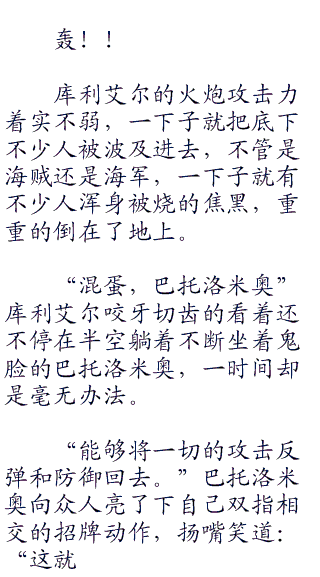 轰！！
库利艾尔的火炮攻击力
着实不弱，一下子就把底下
不少人被波及进去，不管是
海贼还是海军，一下子就有
不少人浑身被烧的焦黑，重
重的倒在了地上。
“混蛋，巴托洛米奥”
库利艾尔咬牙切齿的看着还
不停在半空躺着不断坐着鬼
脸的巴托洛米奥，一时间却
是毫无办法。
“能够将一切的攻击反
弹和防御回去。”巴托洛米
奥向众人亮了下自己双指相
交的招牌动作，扬嘴笑道：
“这就